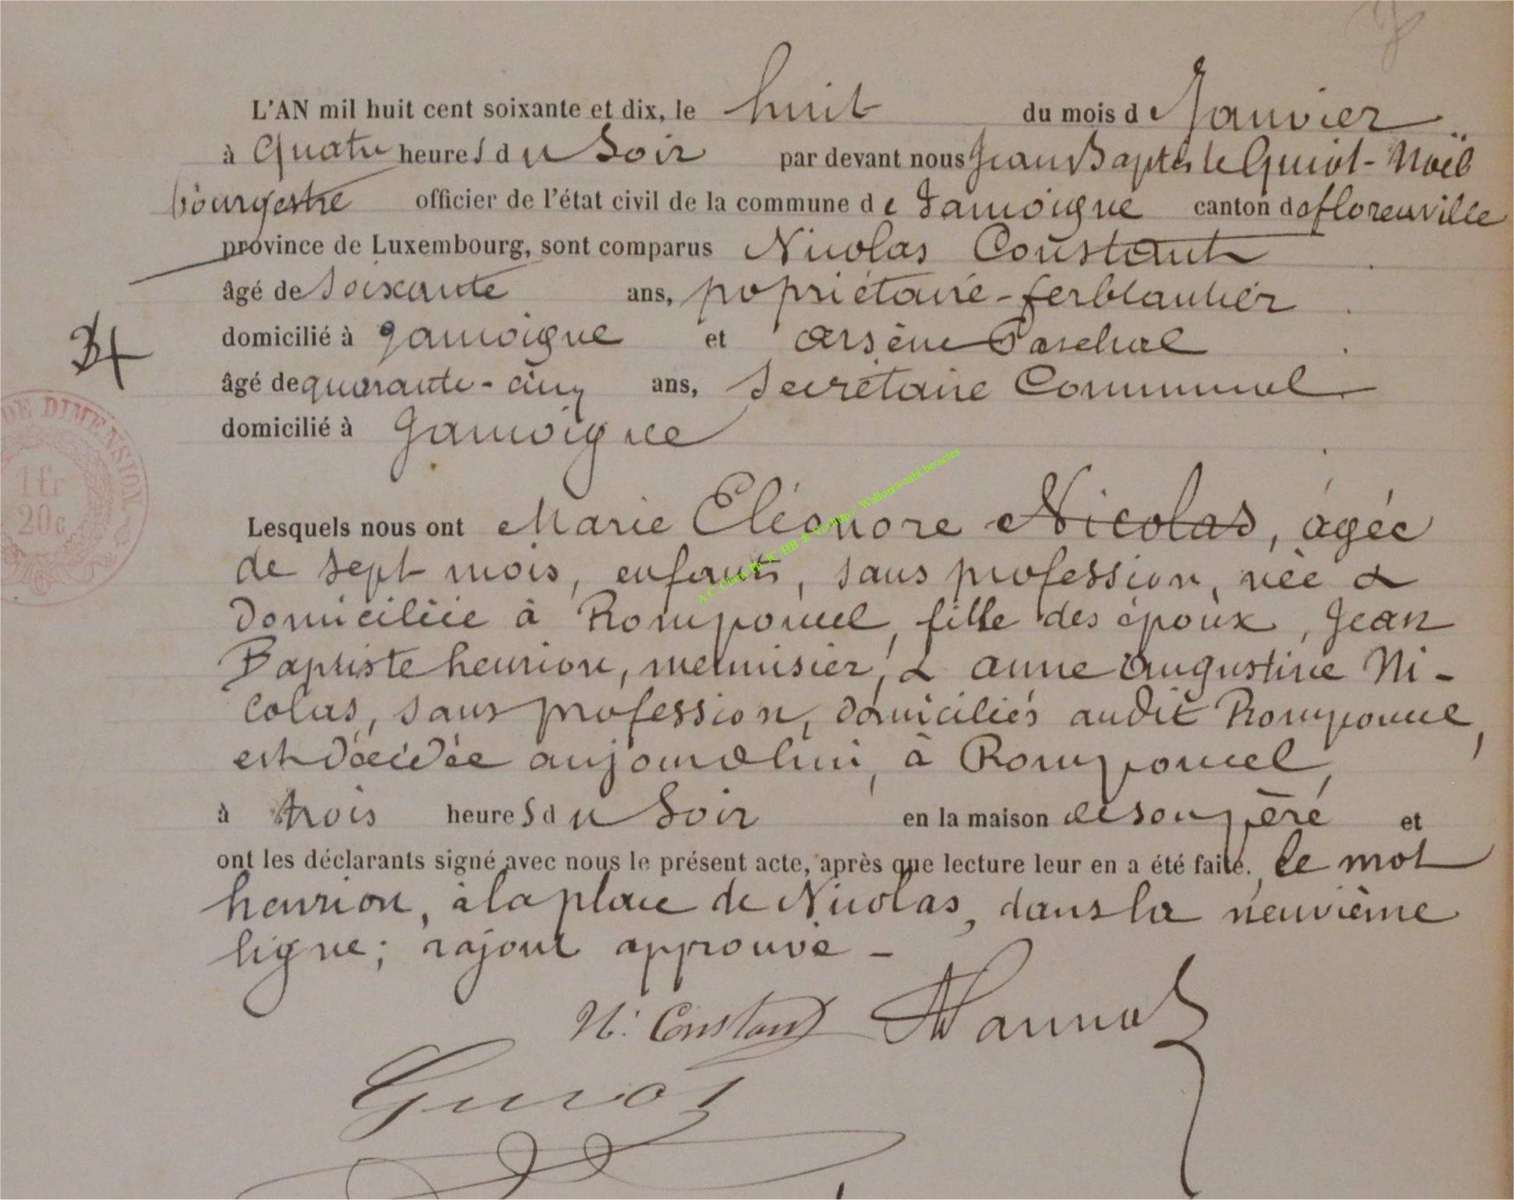 L'AN mil huit cent soixante et dix, le huit du mois de Janvier
à quatre heures du Soir par devant nous Jean Baptiste Guiot-Noël
bourgestre officier de l'état civil de la commune de Jamoigne canton de florenville
province de Luxembourg, sont comparus Nicolas Constant
âgé de Soixante ans, popriétaire-ferblantier
domicilié à Jamoigne et Arsène
âgé de quarante-cinq ans, Secrétaire Communal
domicilié à Jamoigne
Lesquels nous ont Marie Eléonore Nicolas, âgée
de sept mois, enfant, sans profession, née &
Domiciliée à Romponcel, fille des époux, Jean
Baptiste henrion, menuisier, & anne Augustine Ni-
colas, sans profession, domiciliés audit Romponcel,
est décédée aujourdhui, à Romponcel,
à trois heures du Soir en la maison de son père et
ont les déclarants signé avec nous le présent acte, après que lecture leur en a été faite., le mot
henrion, à la place de Nicolas, dans la neuvième
ligne; rajout approuvé -
N. Constant
Guiot
34
DE DIMENSION
1 fr
20c